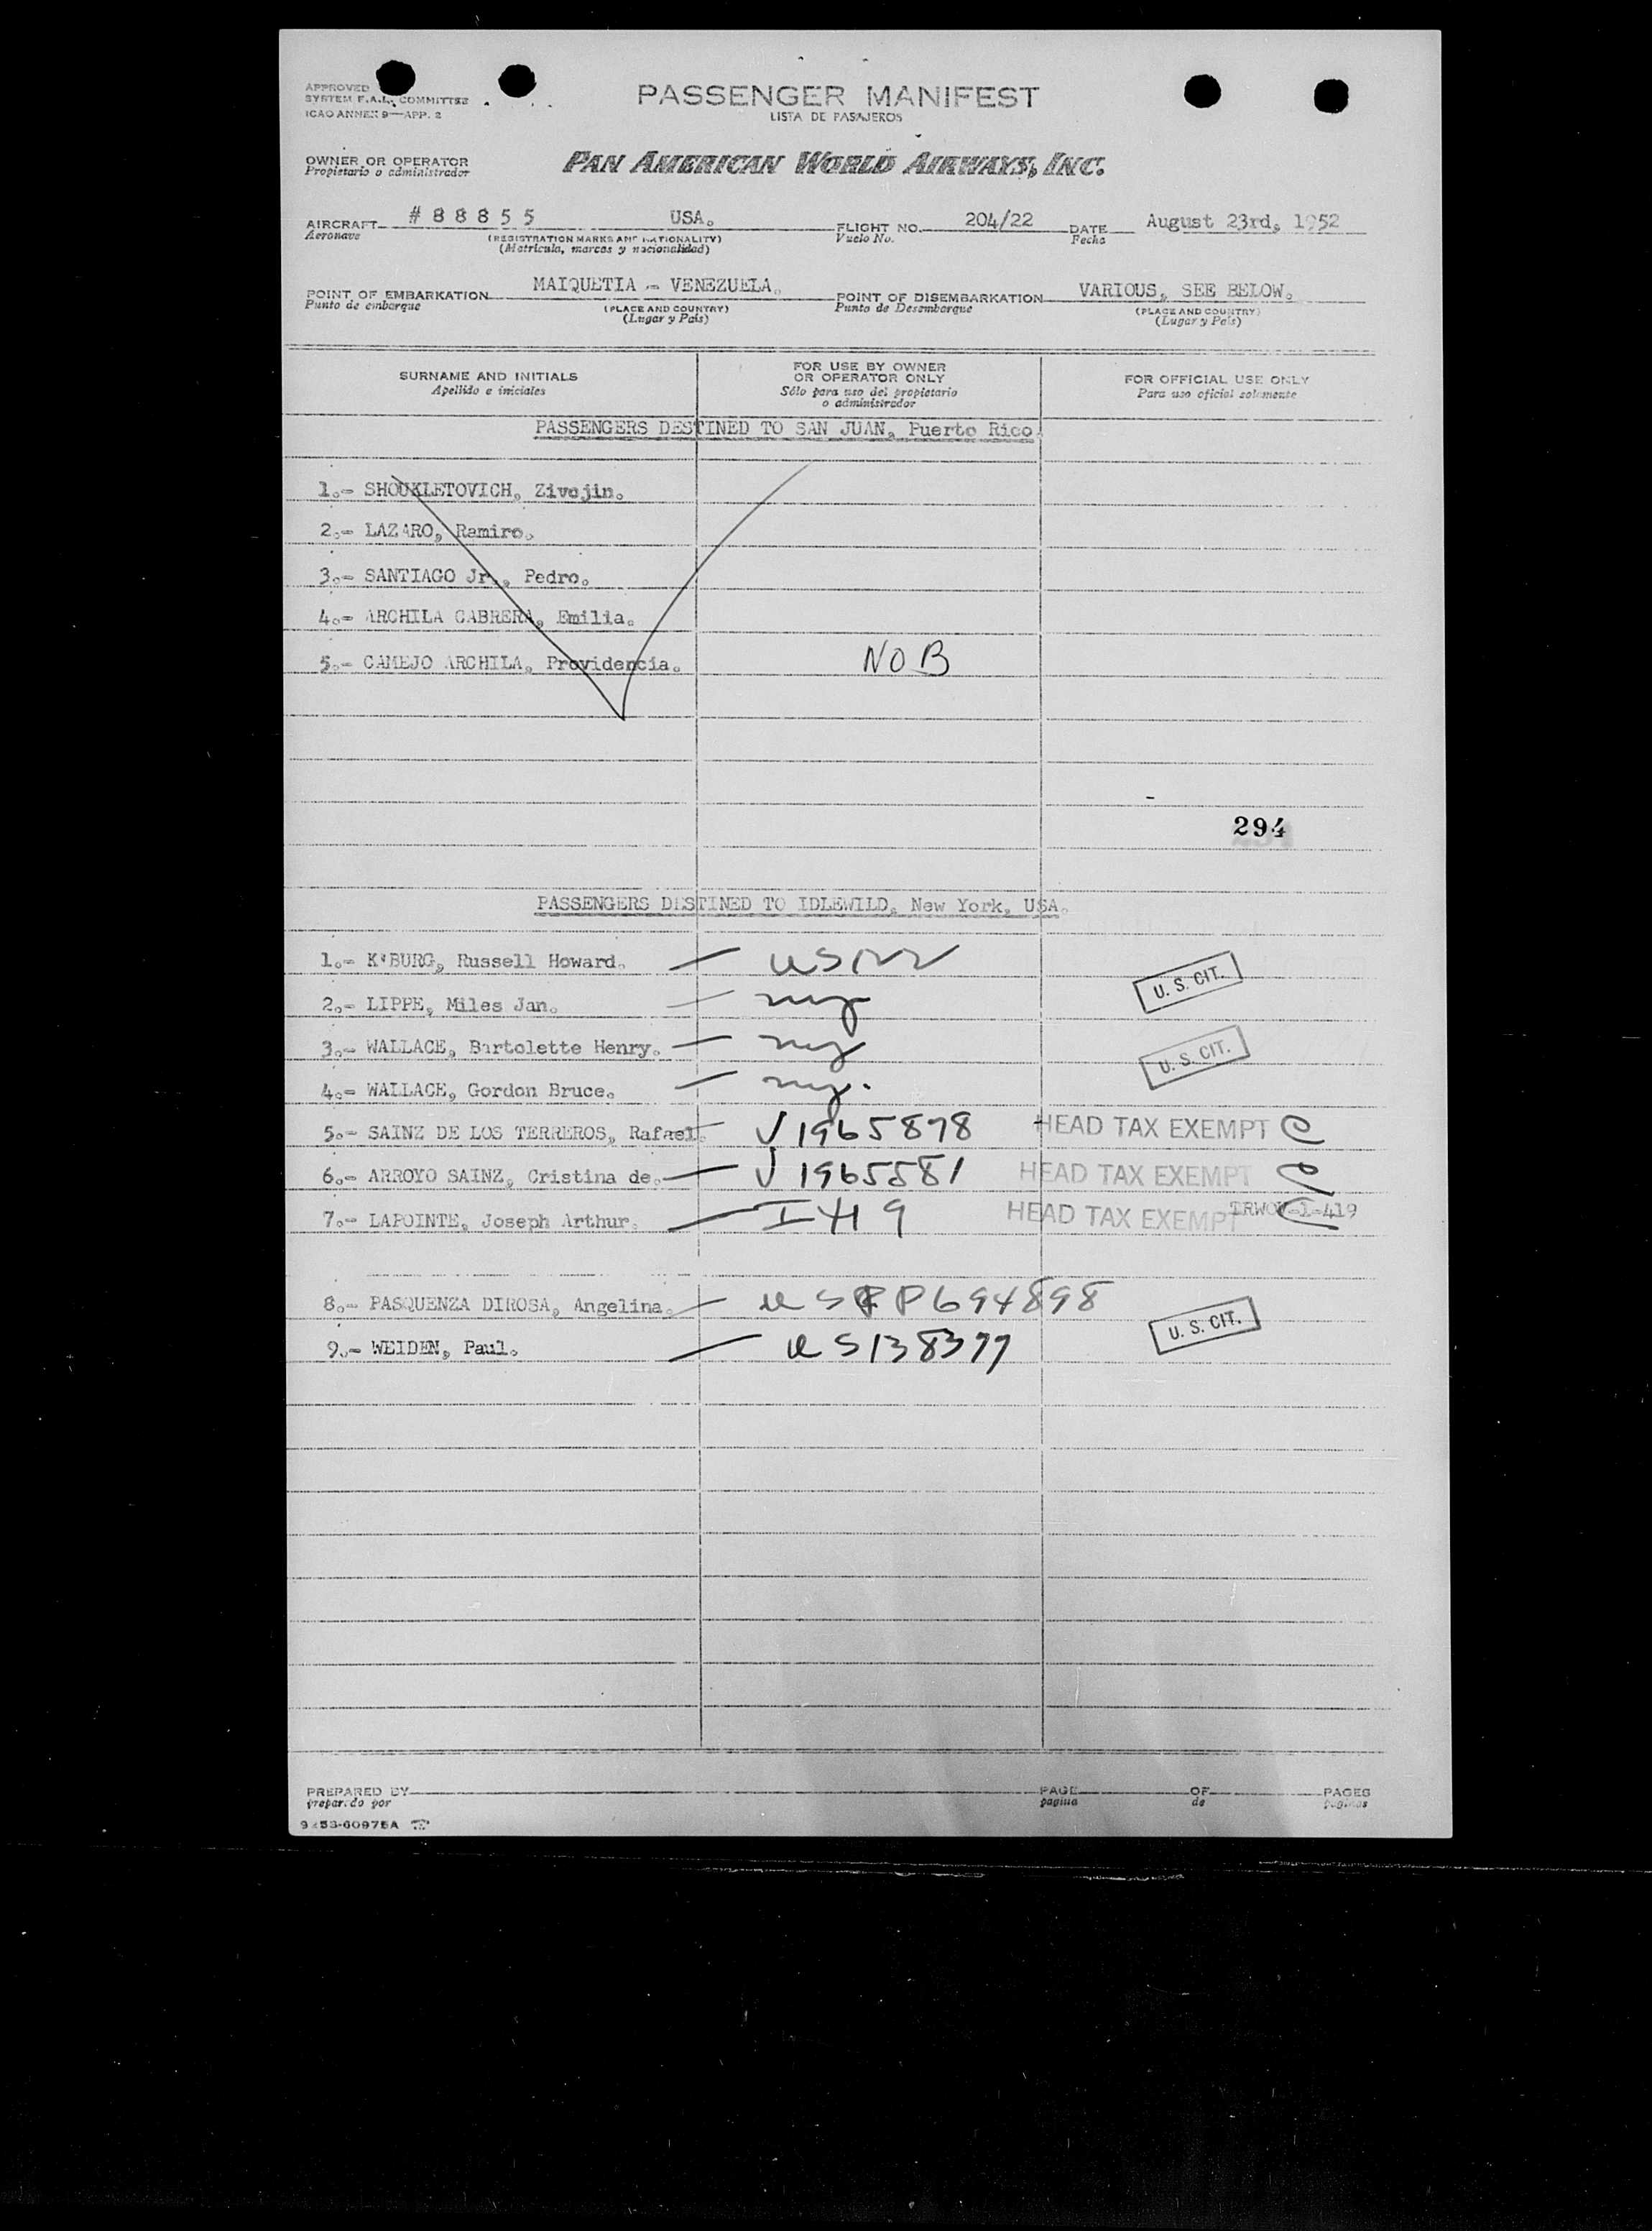 APPROVED
SYSTEM F.A.L. COMMITTEE
ICAO ANNEX 9—APP. 2
PASSENGER MANIFEST
LISTA DE PASAJEROS
OWNER OR OPERATOR
Propietario o administrador
PAN AMERICAN WORLD AIRWAYS, INC.
AIRCRAFT # 8 8 8 5 5 USA. FLIGHT NO. 204/22 DATE August 23rd, 1952
Aeronave (REGISTRATION MARKS AND NATIONALITY) Vuelo No. Fecha
(Matrícula, marcas y nacionalidad)
POINT OF EMBARKATION MAIQUETIA - VENEZUELA. POINT OF DISEMBARKATION VARIOUS, SEE BELOW.
Punto de embarque (PLACE AND COUNTRY) Punto de Desembarque (PLACE AND COUNTRY)
(Lugar y País) (Lugar y País)
SURNAME AND INITIALS
Apellido e iniciales
FOR USE BY OWNER
OR OPERATOR ONLY
Sólo para uso del propietario
o administrador
FOR OFFICIAL USE ONLY
Para uso oficial solamente
PASSENGERS DESTINED TO SAN JUAN, Puerto Rico
1.- SHOUKLETOVICH, Zivojin.
2.- LAZARO, Ramiro.
3.- SANTIAGO Jr., Pedro.
4.- ARCHILA CABRERA, Emilia.
5.- CAMEJO ARCHILA, Providencia. NOB
294
PASSENGERS DESTINED TO IDLEWILD, New York, USA.
1.- K'BURG, Russell Howard. U.S. CIT.
2.- LIPPE, Miles Jan.
3.- WALLACE, Bartolette Henry. U.S. CIT.
4.- WALLACE, Gordon Bruce.
5.- SAINZ DE LOS TERREROS, Rafael. V 1965878 HEAD TAX EXEMPT
6.- ARROYO SAINZ, Cristina de. V 1965581 HEAD TAX EXEMPT
7.- LAPOINTE, Joseph Arthur. HEAD TAX EXEMPT
8.- PASQUENZA DIROSA, Angelina. P694898
9.- WEIDEN, Paul. US138377 U.S. CIT.
PREPARED BY PAGE OF PAGES
preparado por pagina de paginas